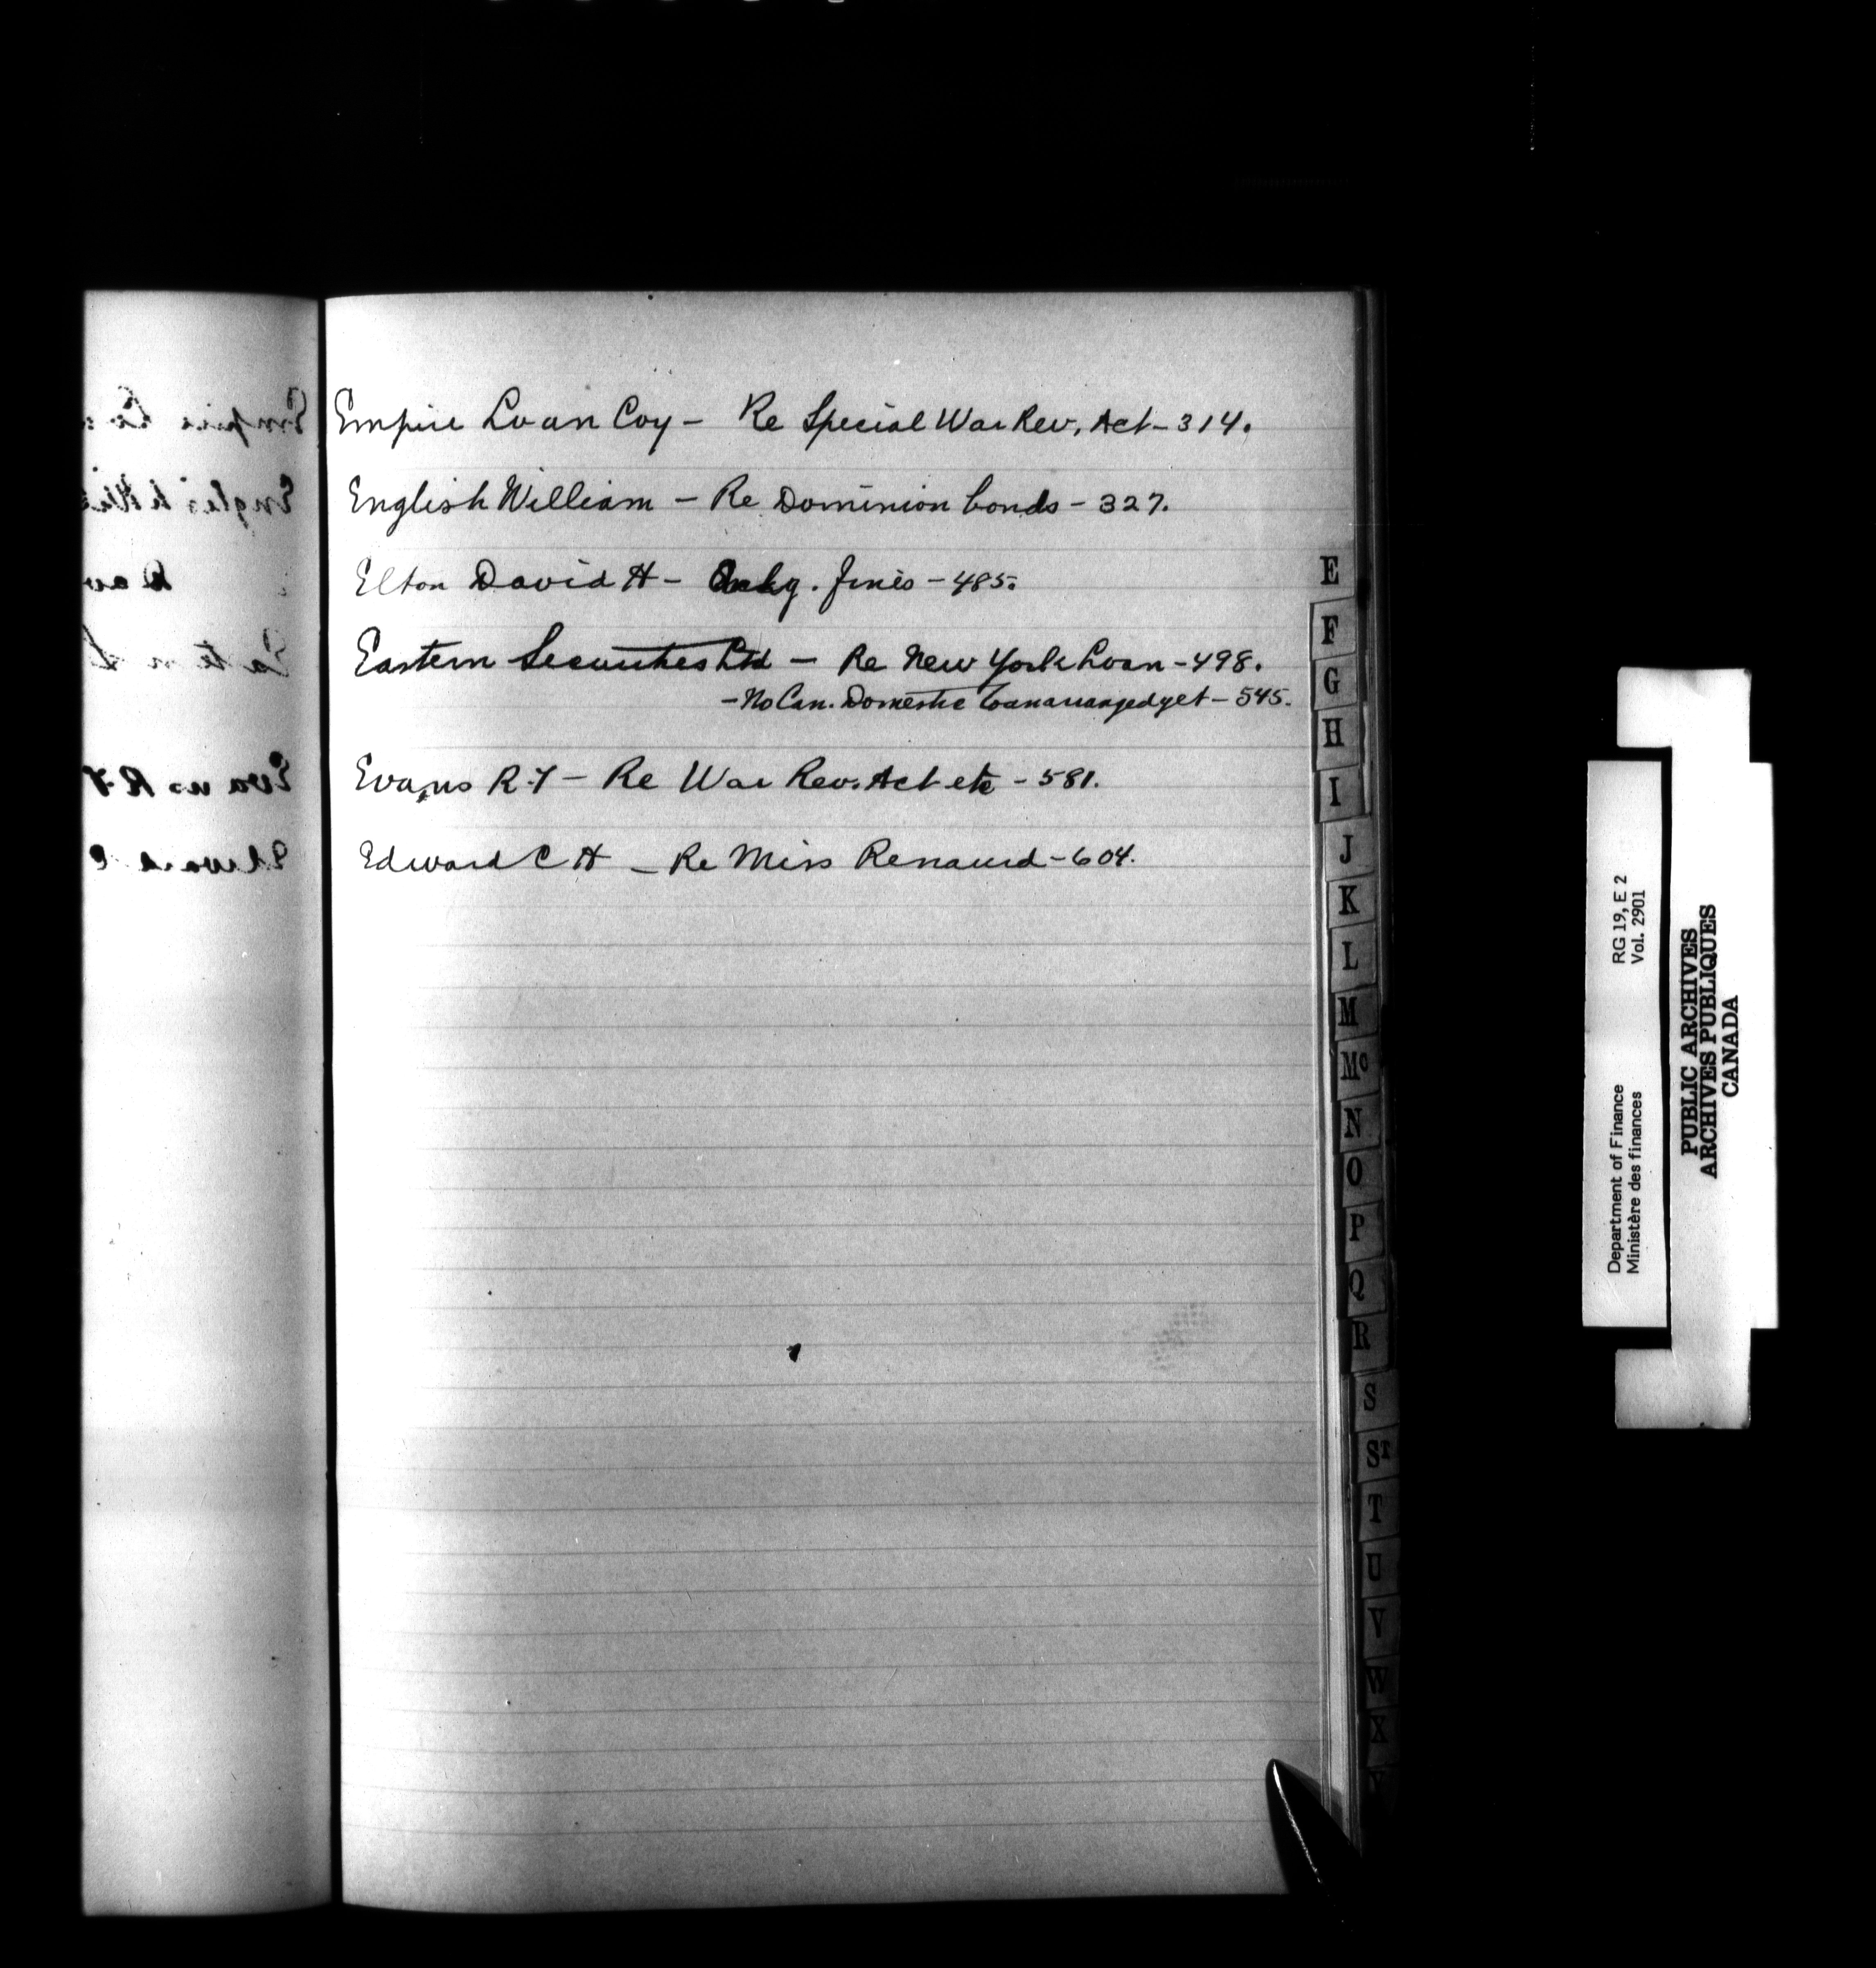 Empire Loan Coy - Re Special War Rev. Act - 314.
English William - Re Dominion bonds - 327.
Elton David H - Ackg. fines - 485.
Eastern Securities Ltd - Re New York Loan - 498.
- No Can. Domestic loan arranged yet - 545.
Evans R.Y - Re War Rev. Act etc - 581.
Edward C H - Re Miss Renaud - 604.
E
F
G
H
I
J
K
L
M
Mc
N
O
P
Q
R
S
ST
T
U
V
W
X
Y
Department of Finance RG 19, E 2
Ministère des finances Vol. 2901
PUBLIC ARCHIVES
ARCHIVES PUBLIQUES
CANADA